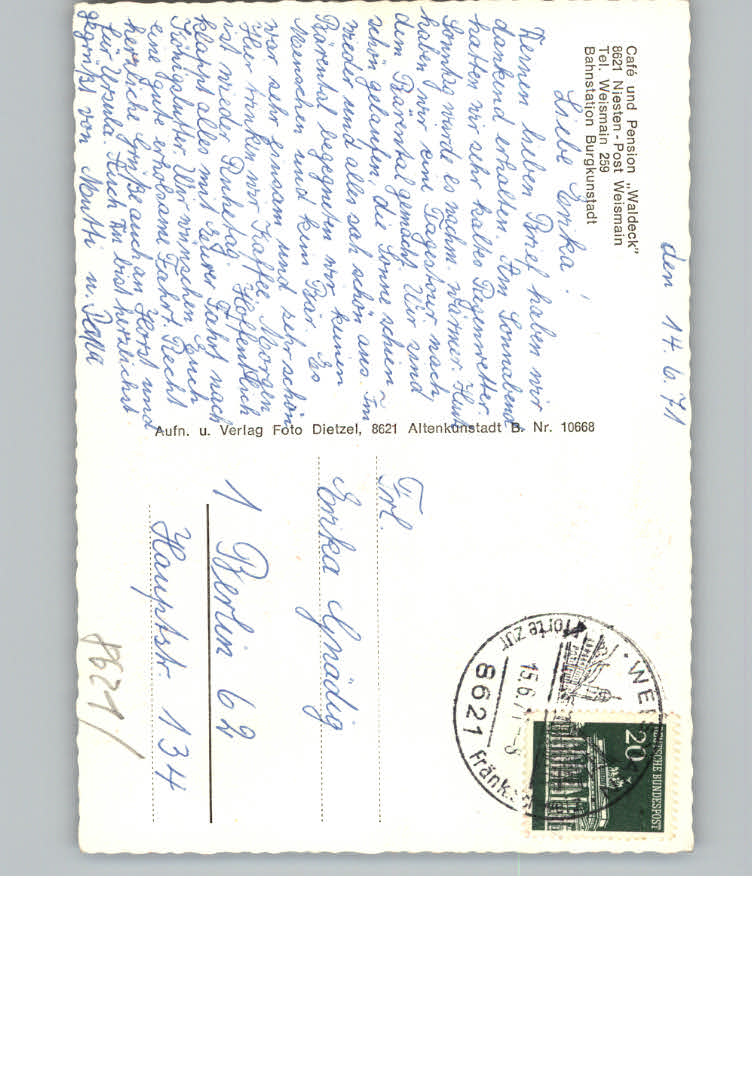 Café und Pension „Waldeck"
8621 Niesten - Post Weismain
Tel. Weismain 259
Bahnstation Burgkunstadt
den 14.6.71
Liebe Erika!
Deinen lieben Brief haben wir
dankend erhalten. Am Sonnabend
hatten wir sehr kaltes Regenwetter.
Sonntag wurde es nachm. wärmer. Heute
haben wir eine Tagestour nach
dem Bärental gemacht. Wir sind
schön gelaufen, die Sonne schien
wieder und alles sah schön aus. Im
Bärental begegneten wir keinen
Menschen und kein Bär. Es
war sehr einsam und sehr schön
Hier trinken wir Kaffee. Morgen
ist wieder Ruhetag. Hoffentlich
klappt alles mit Eurer Fahrt nach
Wir wünschen Euch
eine gute erholsame Fahrt. Recht
herzliche Grüße auch an Horst und
für Ursula. Euch bist herzlichst
gegrüßt von Mutti u. Papa
Aufn. u. Verlag Foto Dietzel, 8621 Altenkunstadt B. Nr. 10668
Frl.
Erika Gnädig
1 Berlin 62
Hauptstr. 134
8621/
8621
15.6.71-8
Pforte zur
Fränk.
20
DEUTSCHE BUNDESPOST